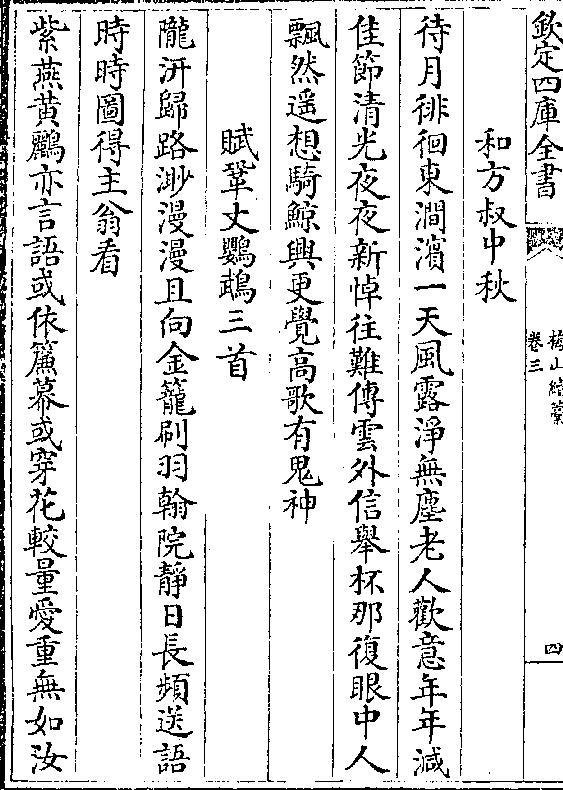 欽定四庫全書
梅山續藁
卷三
四
和方叔中秋
待月徘徊東澗濱一天風露淨無塵老人歡意年年減
佳節清光夜夜新悼往難傳雲外信舉杯那復眼中人
飄然遥想騎鯨興更覺高歌有鬼神
賦鞏丈鸚鵡三首
隴汧歸路渺漫漫且向金籠刷羽翰院靜日長頻送語
時時圖得主翁看
紫燕黄鸝亦言語或依簾幕或穿花較量愛重無如汝